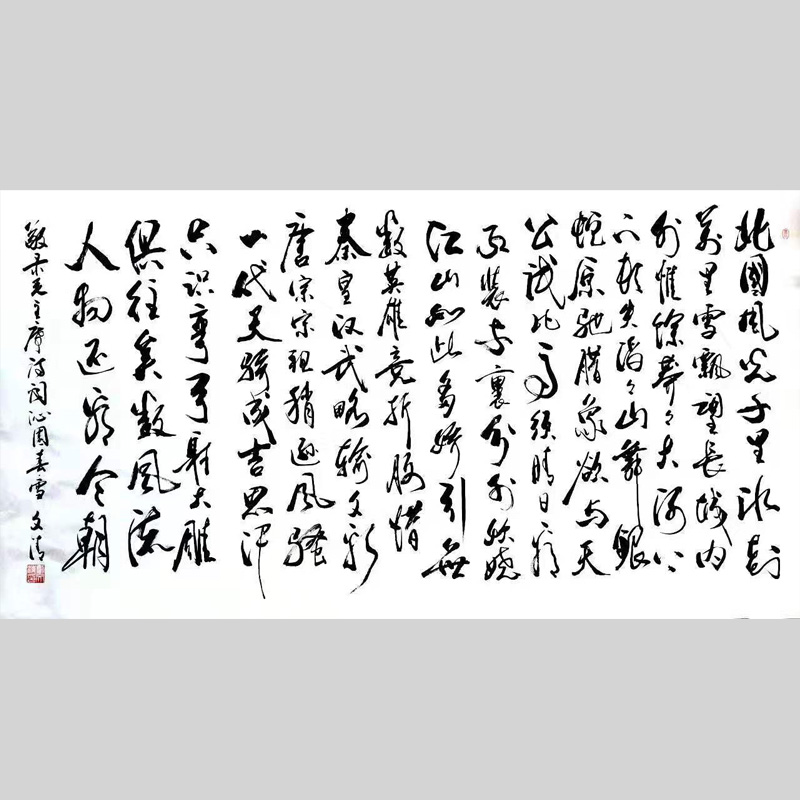 北國風光千里冰封
萬里雪飄望长城内
外惟馀莽々大河上
下顿失滔々山舞銀
蛇原驰腊象欲与天
公试比高须晴日看
红装素裹分外妖娆
江山如此多娇引無
数英雄竞折腰惜
秦皇汉武略输文彩
唐宗宋祖稍逊风骚
一代天骄成吉思汗
只识弯弓射大雕
俱往矣数风流
人物还看今朝
敬录毛主席诗词沁园春雪 文清